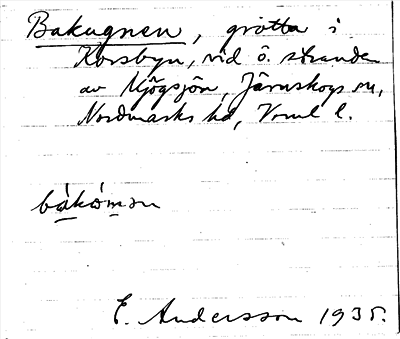 Bakugnen, grotta i
Korsbyn, vid ö. stranden
av Kjögsjön, Järnskogs sn,
Nordmarks hd, Vrml l.
E. Andersson 1935.